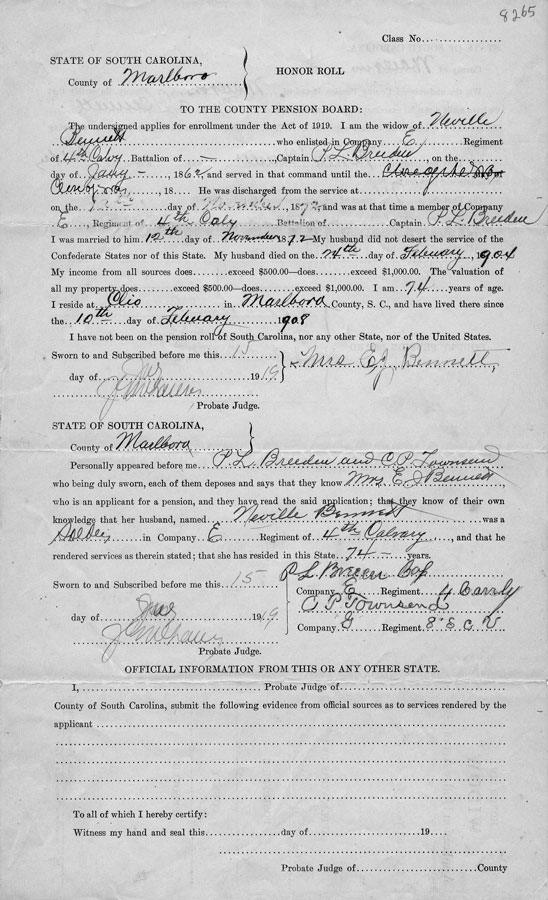 8265
Class No..................
STATE OF SOUTH CAROLINA,
County of Marlboro
HONOR ROLL
TO THE COUNTY PENSION BOARD:
The undersigned applies for enrollment under the Act of 1919. I am the widow of Neville
Bennett who enlisted in Company E Regiment
of 4th Calvy Battalion of - Captain P. L. Breeden, on the
day of Jany - 1862, and served in that command until the Close of the War
18.... He was discharged from the service at
on the day of 1872 and was at that time a member of Company
E Regiment of 4th Calv Battalion of Captain P. L. Breeden
I was married to him 12th day of November 1872 My husband did not desert the service of the
Confederate States nor of this State. My husband died on the 24th day of February, 1904
My income from all sources does........exceed $500.00—does........exceed $1,000.00. The valuation of
all my property does........exceed $500.00—does........exceed $1,000.00. I am 74 years of age.
I reside at Clio in Marlboro County, S. C., and have lived there since
the 10th day of February 1908
I have not been on the pension roll of South Carolina, nor any other State, nor of the United States.
Sworn to and Subscribed before me this 15
Mrs E. J. Bennett,
day of 1919.
Probate Judge.
STATE OF SOUTH CAROLINA,
County of Marlboro
Personally appeared before me P. L. Breeden and C. P. Townsend
who being duly sworn, each of them deposes and says that they know Mrs. E. J Bennett
who is an applicant for a pension, and they have read the said application; that they know of their own
knowledge that her husband, named Neville Bennett was a
Solder in Company E Regiment of 4th Calvary, and that he
rendered services as therein stated; that she has resided in this State 74 - years.
Sworn to and Subscribed before me this 15
P L Breeden
Company E Regiment 4
day of 1919
C P Townsend
Company G Regiment 8" S C V
Probate Judge.
OFFICIAL INFORMATION FROM THIS OR ANY OTHER STATE.
I, ........................ Probate Judge of........................
County of South Carolina, submit the following evidence from official sources as to services rendered by the
applicant ........................
To all of which I hereby certify:
Witness my hand and seal this........................day of........................19....
Probate Judge of........................County